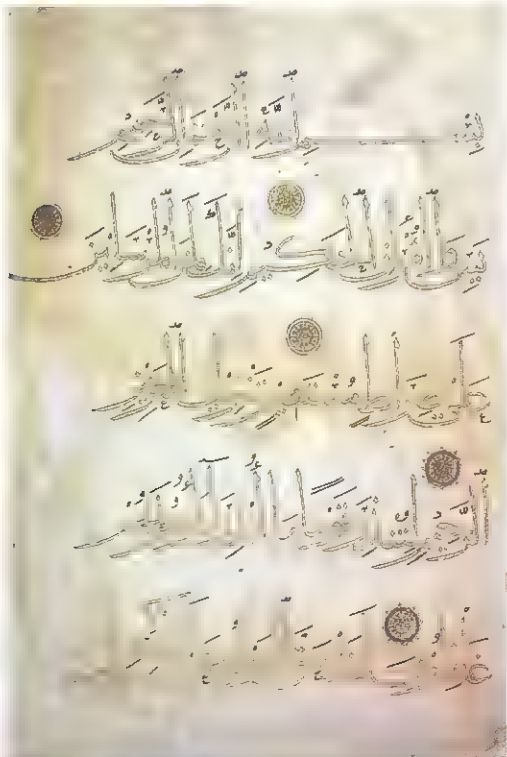 بِسْمِ اللَّهِ الرَّحْمَٰنِ الرَّحِيمِ
يس وَالْقُرْآنِ الْحَكِيمِ إِنَّكَ لَمِنَ الْمُرْسَلِينَ
عَلَىٰ صِرَاطٍ مُسْتَقِيمٍ تَنْزِيلَ الْعَزِيزِ
الرَّحِيمِ لِتُنْذِرَ قَوْمًا مَا أُنْذِرَ آبَاؤُهُمْ فَهُمْ